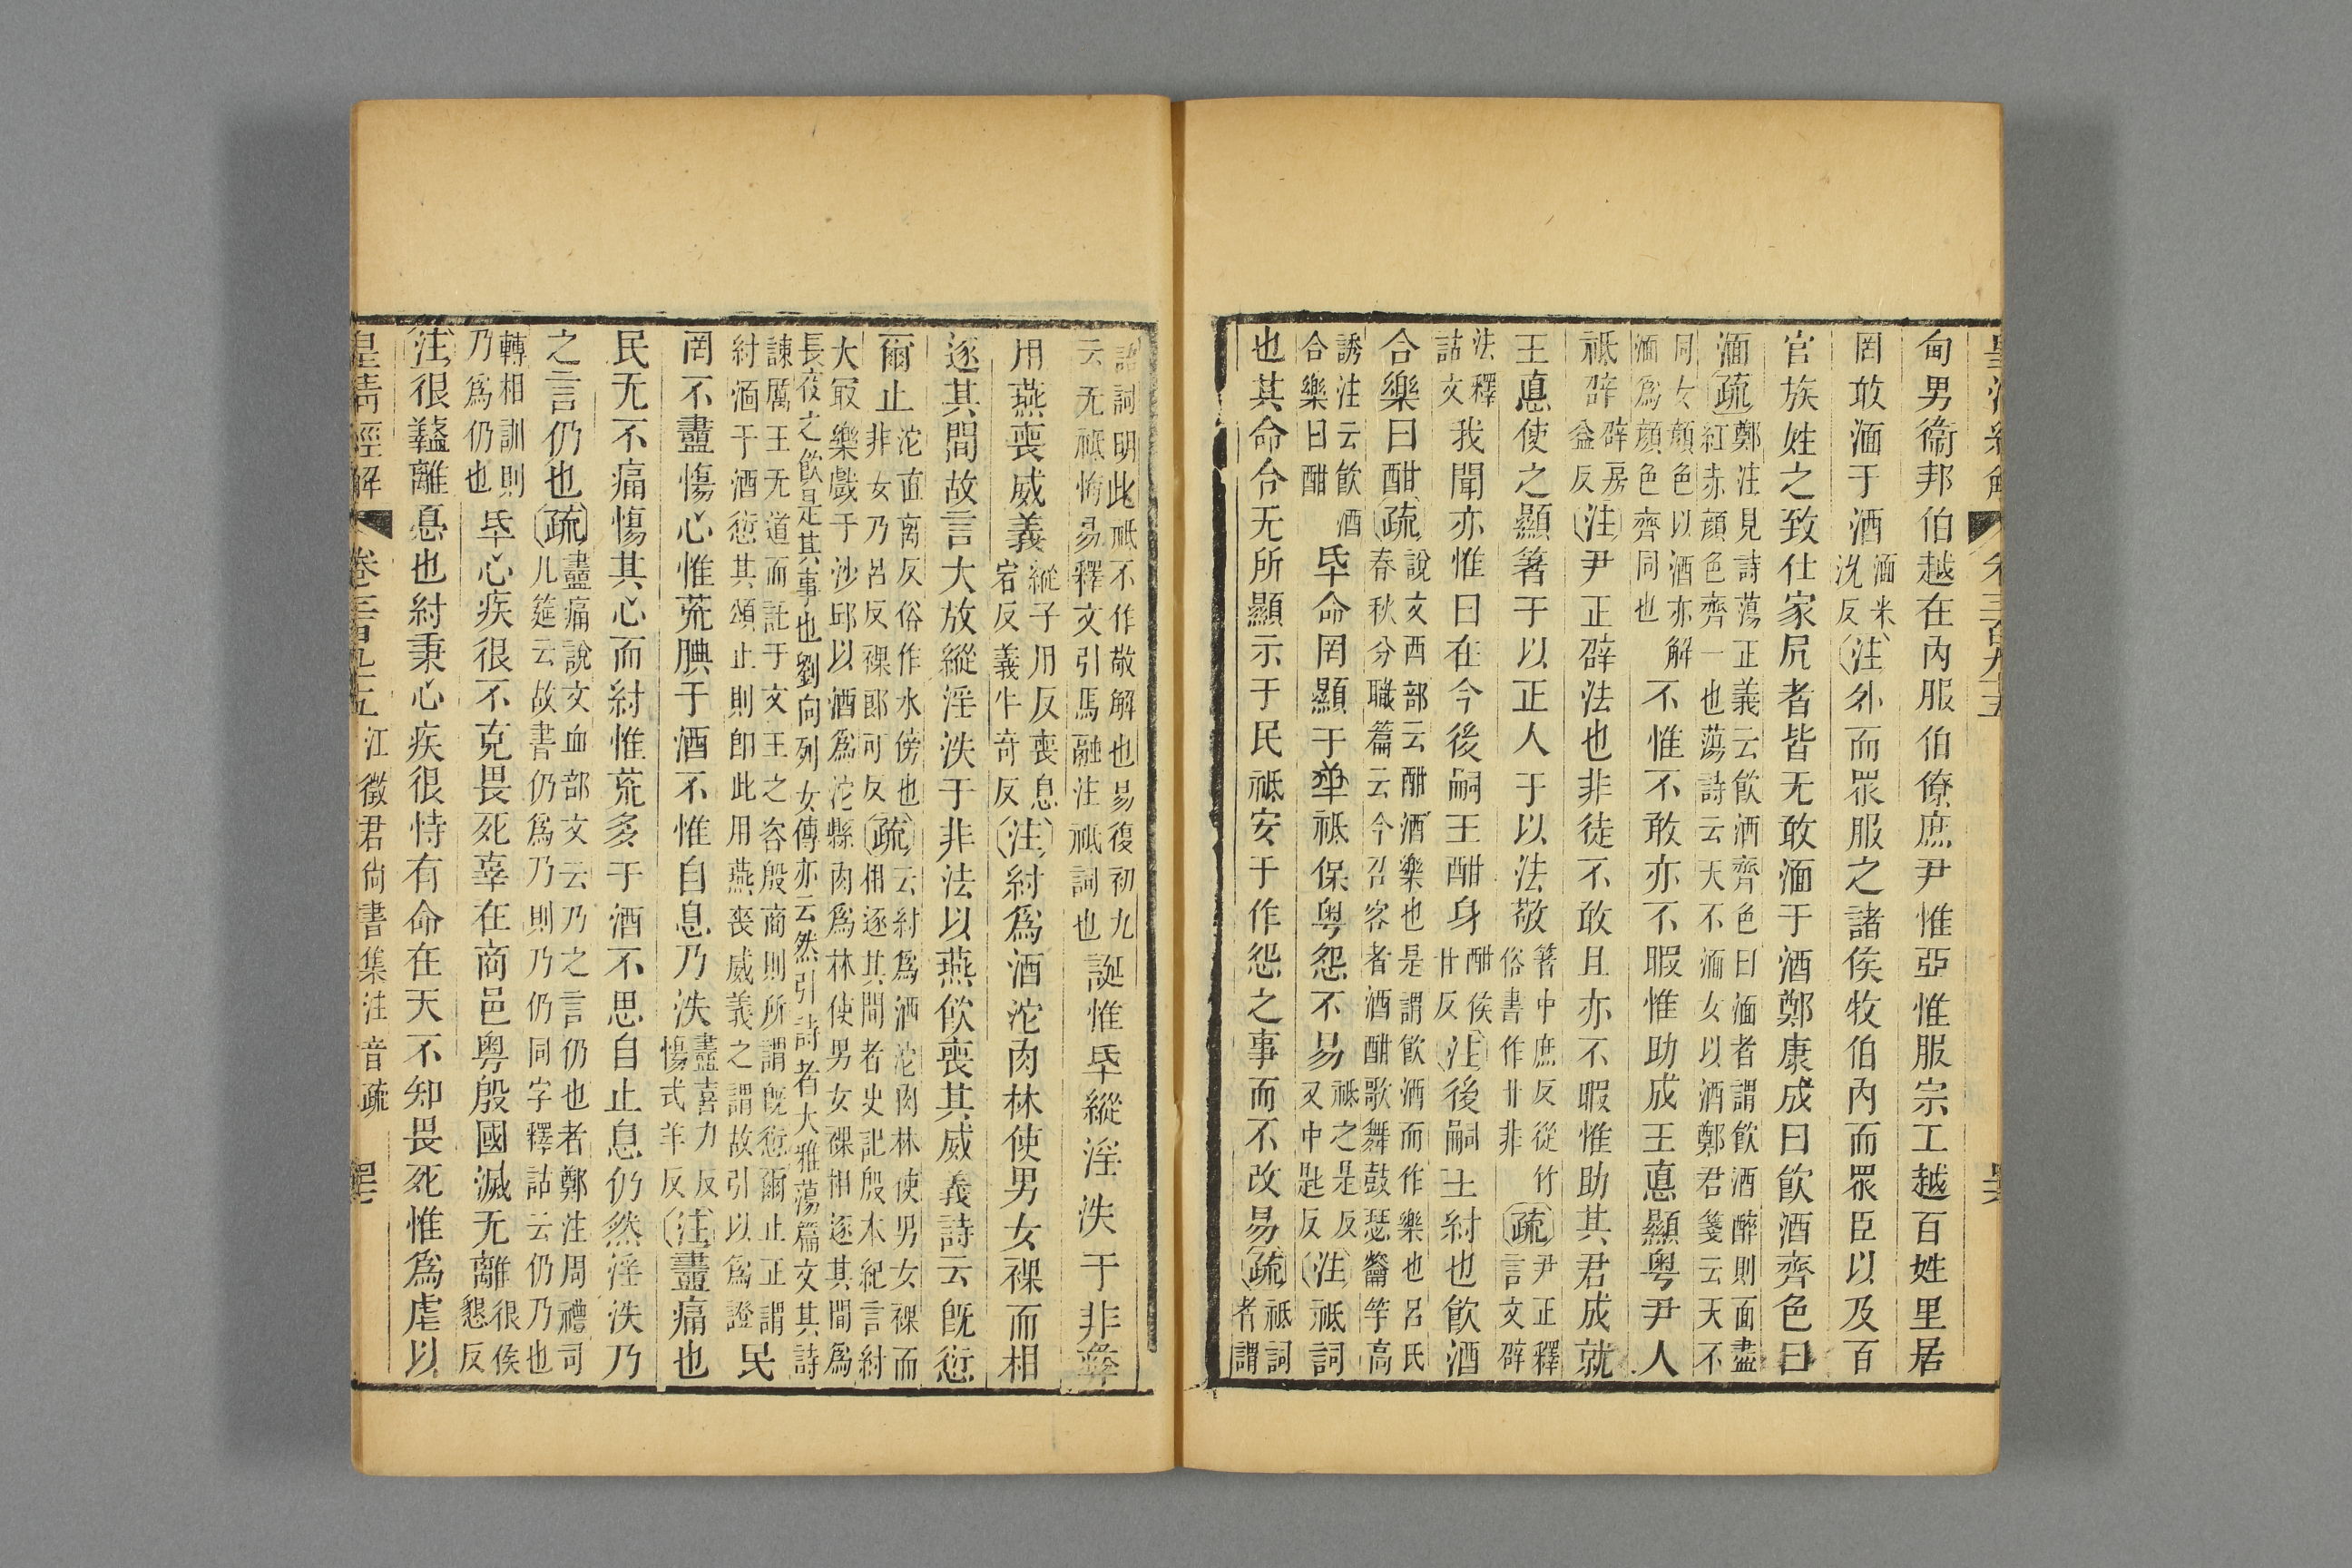 甸男衞邦伯越在內服伯僚庶尹惟亞惟服宗工越百姓里居
罔敢湎于酒湎米沇反注外而眾服之諸侯牧伯內而眾臣以及百
官族姓之致仕家凥者皆无敢湎于酒鄭康成曰飮酒齊色曰
湎疏鄭注見詩蕩正義云飮酒齊色曰湎者謂飮酒醉則面盡
紅赤顔色齊一也蕩詩云天不湎女以酒鄭君箋云天不
同女顔色以酒亦解
湎爲顔色齊同也不惟不敢亦不暇惟助成王悳顯粵尹人
祗辟辟房益反注尹正辟法也非徒不敢且亦不暇惟助其君成就
王悳使之顯箸于以正人于以法敬箸中庶反從竹俗書作艹非疏尹正釋言文辟
法釋詁文我聞亦惟曰在今後嗣王酣身酣侯甘反注後嗣王紂也飮酒
合樂曰酣疏說文酉部云酣酒樂也是謂飮酒而作樂也呂氏
春秋分職篇云今召客者酒酣歌舞鼓瑟龠竽高
誘注云飮酒合樂曰酣氒命罔顯于祗保粵怨不易祗之是反又中匙反注祗詞
也其命令无所顯示于民祗安于作怨之事而不改易疏祗詞者謂
語詞明此祗不作敬解也易復初九
云无祗悔易釋文引馬融注祗詞也誕惟氒縱淫泆于非彝
用燕喪威義縱子用反喪息宕反義牛奇反注紂爲酒沱肉林使男女裸而相
逐其閒故言大放縱淫泆于非法以燕飮喪其威義詩云旣愆
爾止沱直离反俗作水傍也非女乃呂反裸郎可反疏云紂爲酒沱肉林使男女裸而
相逐其閒者史記殷本紀言紂
大冣樂戲于沙邱以酒爲沱縣肉爲林使男女裸相逐其閒爲
長夜之飮是其事也劉向列女傳亦云然引詩者大雅蕩篇文其詩
諫厲王无道而託于文王之咨殷商則所謂旣愆爾止正謂
紂湎于酒愆其頌止則卽此用燕喪威義之謂故引以爲證民
罔不衋傷心惟荒腆于酒不惟自息乃泆衋喜力反傷式羊反注衋痛也
民无不痛傷其心而紂惟荒多于酒不思自止息仍然淫泆乃
之言仍也疏衋痛說文血部文云乃之言仍也者鄭注周禮司
几筵云故書仍爲乃則乃仍同字釋詁云仍乃也
轉相訓則乃爲仍也氒心疾很不克畏死辜在商邑粵殷國滅无離很侯懇反
注很盭離㥑也紂秉心疾很恃有命在天不知畏死惟爲虐以
皇清經解 卷三百九十五 江徵君尙書集注音疏